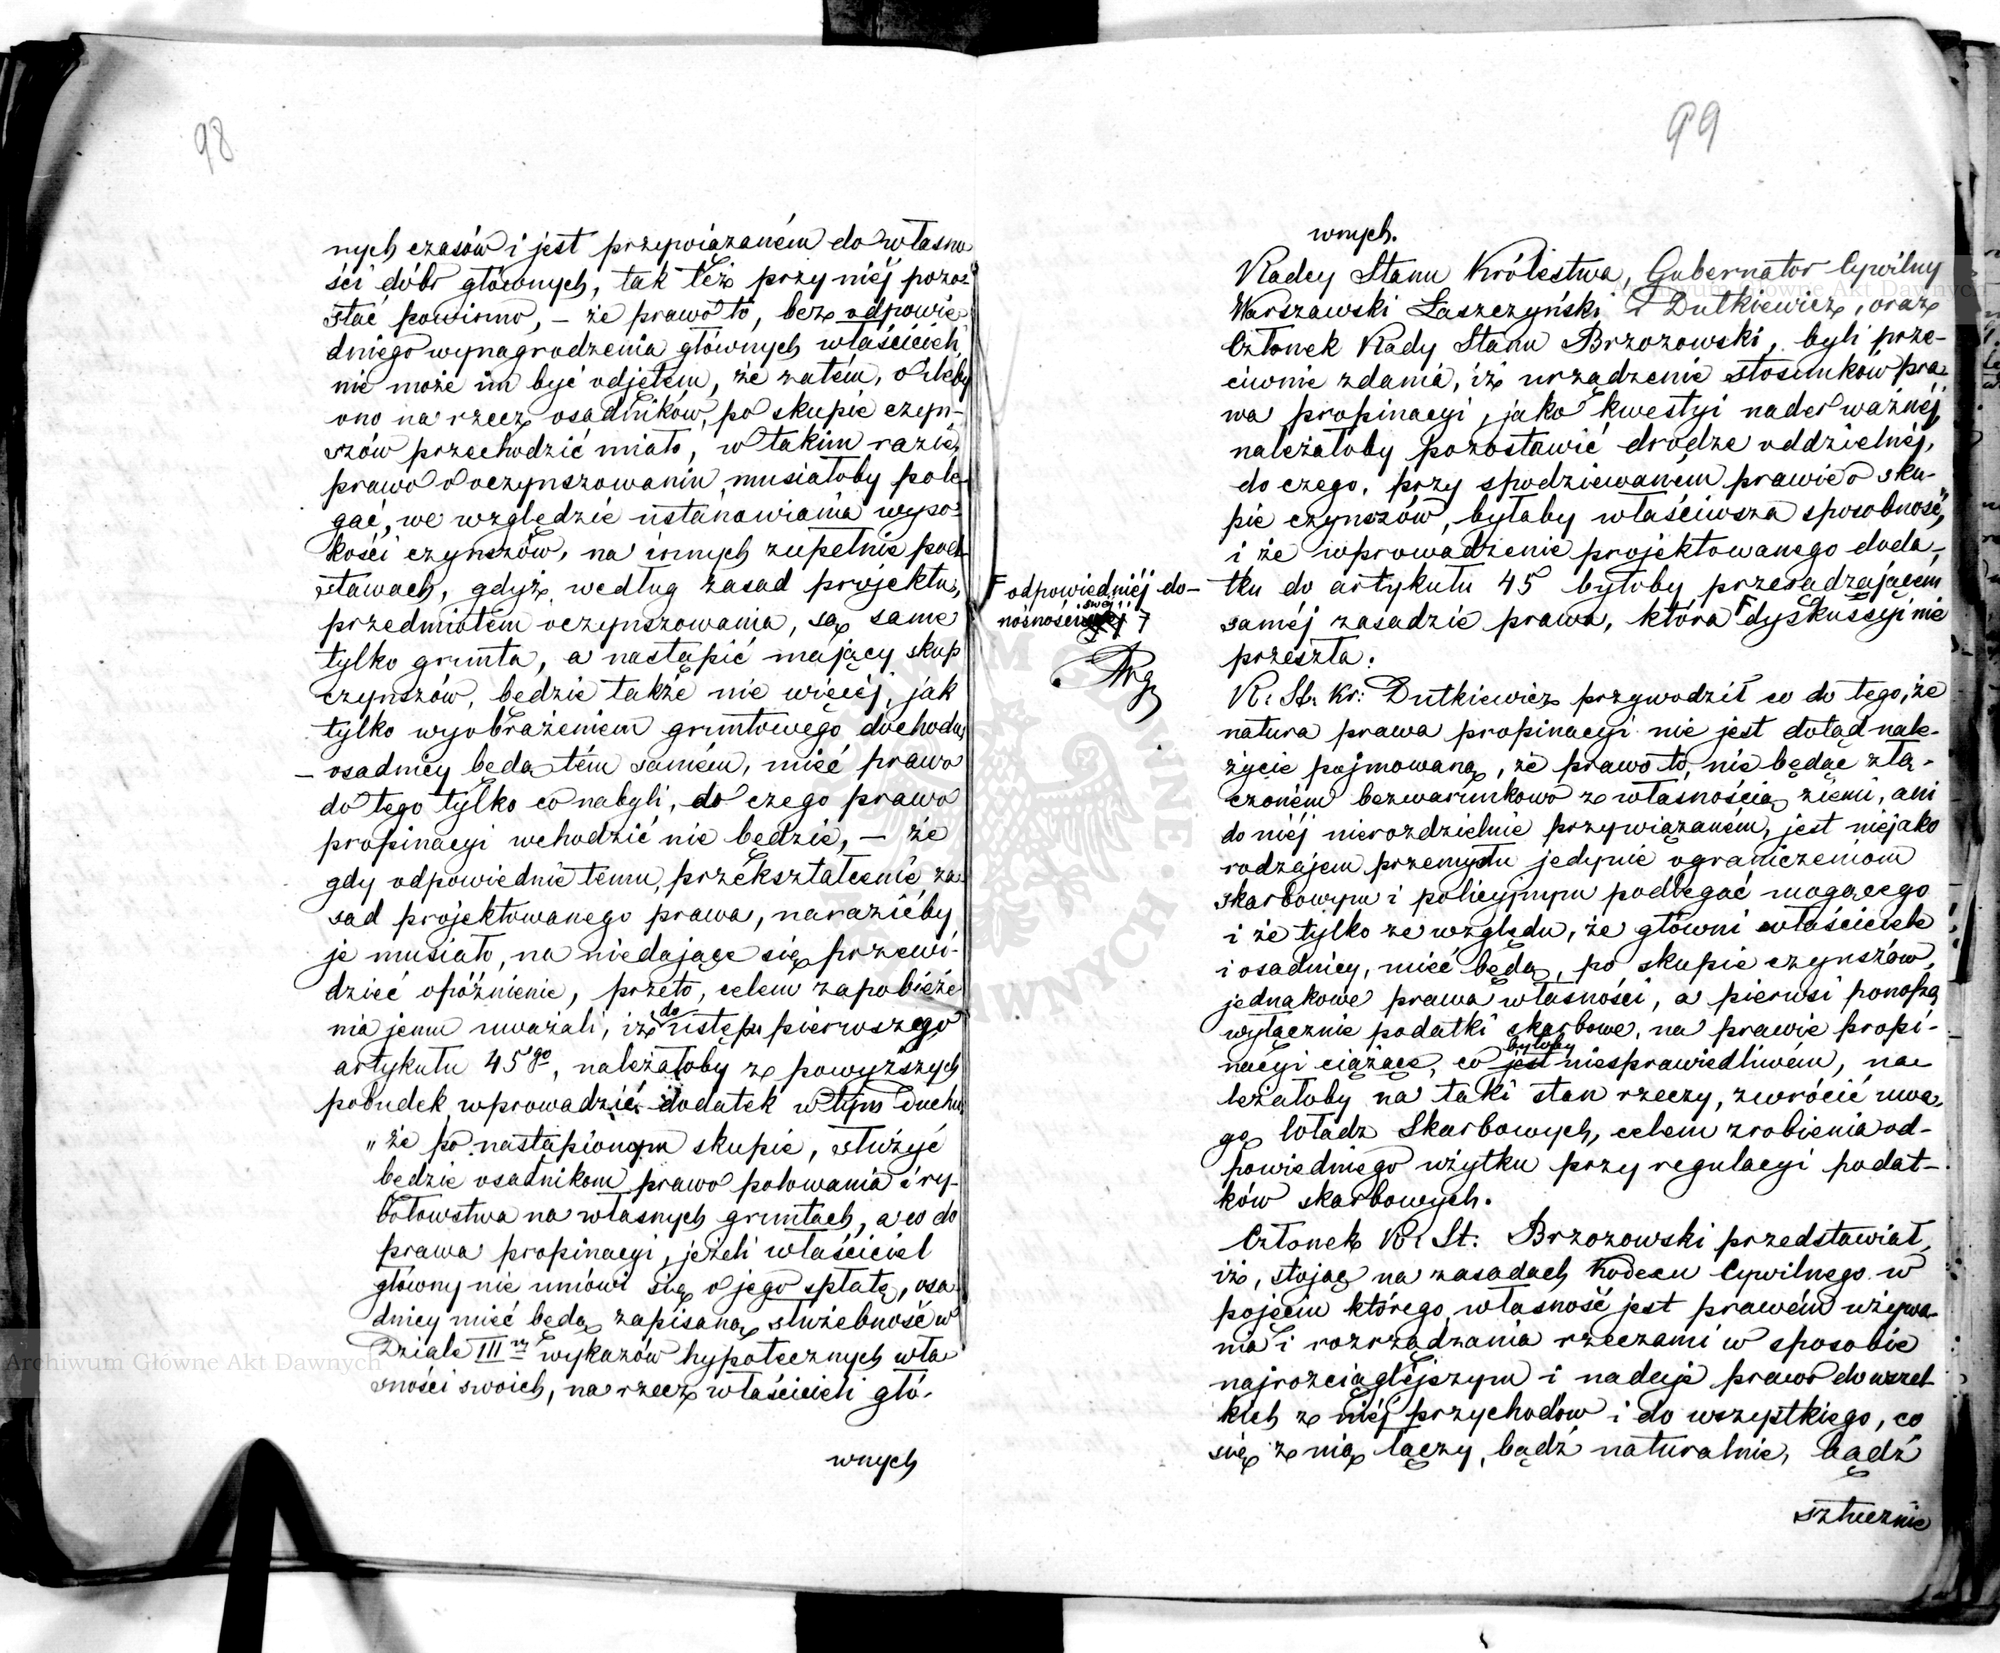 98
nych czasów i jest przywiązaném do własno
ści dóbr głównych, tak też przy niéj pozo-
stać powinno, — że prawo to, bez odpowie
dniego wynagrodzenia głównych właścicieli,
nie może im być odjętem, że zatém, o ileby
ono na rzecz osadników, po skupie czyn-
szów przechodzić miało, w takim razie,
prawo o oczynszowaniu, musiałoby pole-
gać, we względzie ustanowiania wyso-
kości czynszów, na innych zupełnie pod-
stawach, gdyż, według zasad projektu,
przedmiotem oczynszowania, są same
tylko grunta, a nastąpić mający skup
czynszów, będzie także nie więcéj, jak
tylko wyobrażeniem gruntowego dochodu,
— osadnicy będą tém samém, mieć prawo
do tego tylko co nabyli, do czego prawo
propinacyi wchodzić nie będzie, — że
gdy odpowiednie temu, przekształcenie za-
sad projektowanego prawa, narazićby
je musiało, na niedające się przewi-
dzieć opóźnienie, przeto, celem zapobieże
nia jemu uważali, iż do ustępu pierwszego
artykułu 45go, należałoby z powyższych
pobudek, wprowadzić dodatek w tym duchu
„że po nastąpionym skupie, służyć
będzie osadnikom prawo polowania i ry-
bołowstwa na własnych gruntach, a co do
prawa propinacyi, jeżeli właściciel
główny nie umówi się o jego spłatę, osa-
dnicy mieć będą zapisaną służebność w
Dziale III m wykazów hypotecznych wła
sności swoich, na rzecz właścicieli głó-
wnych
99
wnych.
Radcy Stanu Królestwa, Gubernator Cywilny
Warszawski Łaszczyński i Dutkiewicz, oraz
Członek Rady Stanu Brzozowski, byli prze-
ciwnie zdania, iż urządzenie stosunków pra-
wa propinacyi, jako kwestyi nader ważnéj,
należałoby pozostawić drodze oddzielnéj,
do czego, przy spodziewaném prawie o sku-
pie czynszów, byłaby właściwsza sposobność,
i że wprowadzenie projektowanego doda-
tku do artykułu 45 byłoby przesądzającém
saméj zasadzie prawa, która F dyskussyi nie
przeszła.
F odpowiedniéj do-
nośności swéj
R. St. Kr: Dutkiewicz przywodził co do tego, że
natura prawa propinacyi nie jest dotąd nale-
życie pojmowaną, że prawo to, nie będąc złą-
czoném bezwarunkowo z własnością ziemi, ani
do niéj nierozdzielnie przywiązaném, jest niejako
rodzajem przemysłu jedynie ograniczeniom
skarbowym i policyjnym podlegać mogącego
i że tylko ze względu, że główni właściciele
i osadnicy, mieć będą, po skupie czynszów,
jednakowe prawa własności, a pierwsi ponoszą
wyłącznie podatki skarbowe, na prawie propi-
nacyi ciążące, co jest byłoby niesprawiedliwém, na-
leżałoby na taki stan rzeczy, zwrócić uwa-
gę Władz Skarbowych, celem zrobienia od-
powiedniego użytku przy regulacyi podat-
ków skarbowych.
Członek R. St. Brzozowski przedstawiał,
iż, stojąc na zasadach Kodexu Cywilnego w
pojęciu którego własność jest prawém używa-
nia i rozrządzania rzeczami w sposobie
najrozciąglejszym i nadaje prawo do wszel-
kich z niéj przychodów i do wszystkiego, co
się z nią łączy, bądź naturalnie, bądź
sztucznie
Archiwum Główne Akt Dawnych
Archiwum Główne Akt Dawnych